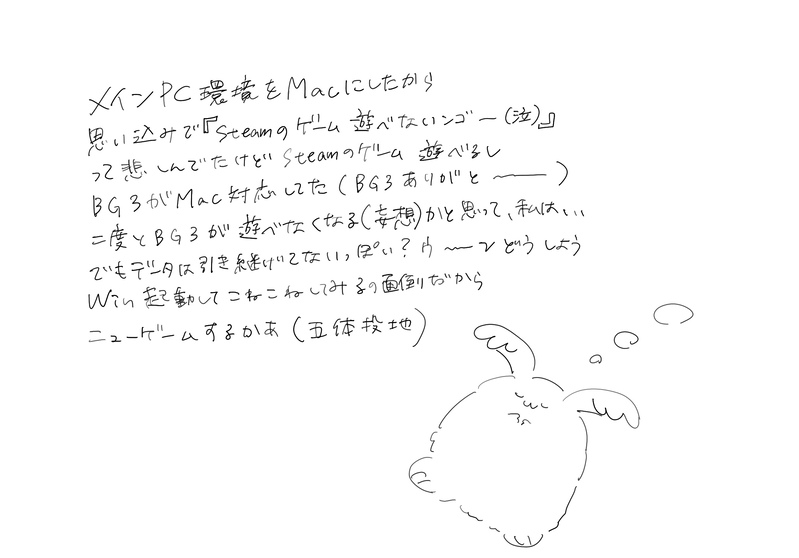 メインPC環境をMacにしたから
思い込みで『Steamのゲーム 遊べないンゴー(泣)』
って悲しんでたけど Steamのゲーム 遊べるし
BG3がMac対応してた(BG3ありがと〜〜)
二度とBG3が遊べなくなる(妄想)かと思って、私は、、
でもデータは引き継げてないっぽい?ウ〜〜ンどうしよう
Win起動してこねこねしてみるの面倒だから
ニューゲームするかあ(五体投地)